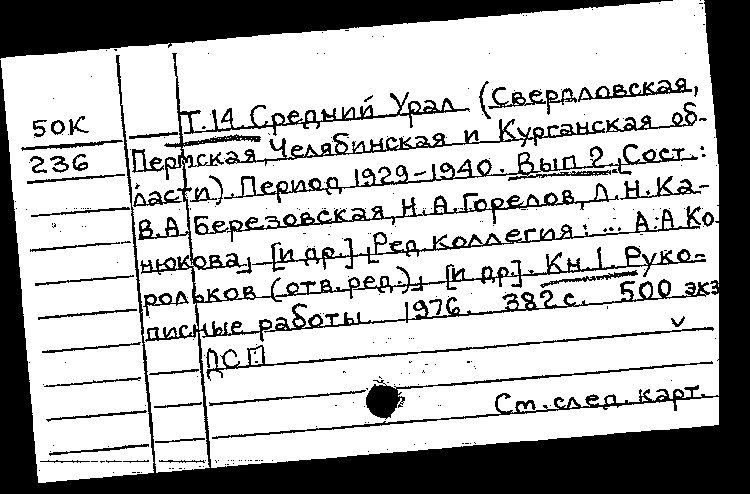 50К Т.14. Средний Урал (Свердловская,
236 Пермская, Челябинская и Курганская об-
ласти). Период 1929-1940. Вып 2. [Сост.:
В.А. Березовская, Н.А. Горелов, Л.Н. Ка-
нюкова] [и др.] [Ред. коллегия: ... А.А. Ко
рольков (отв. ред.)] [и др.]. Кн. 1. Руко-
писные работы 1976. 382 с. 500 экз
ДСП
См. след. карт.